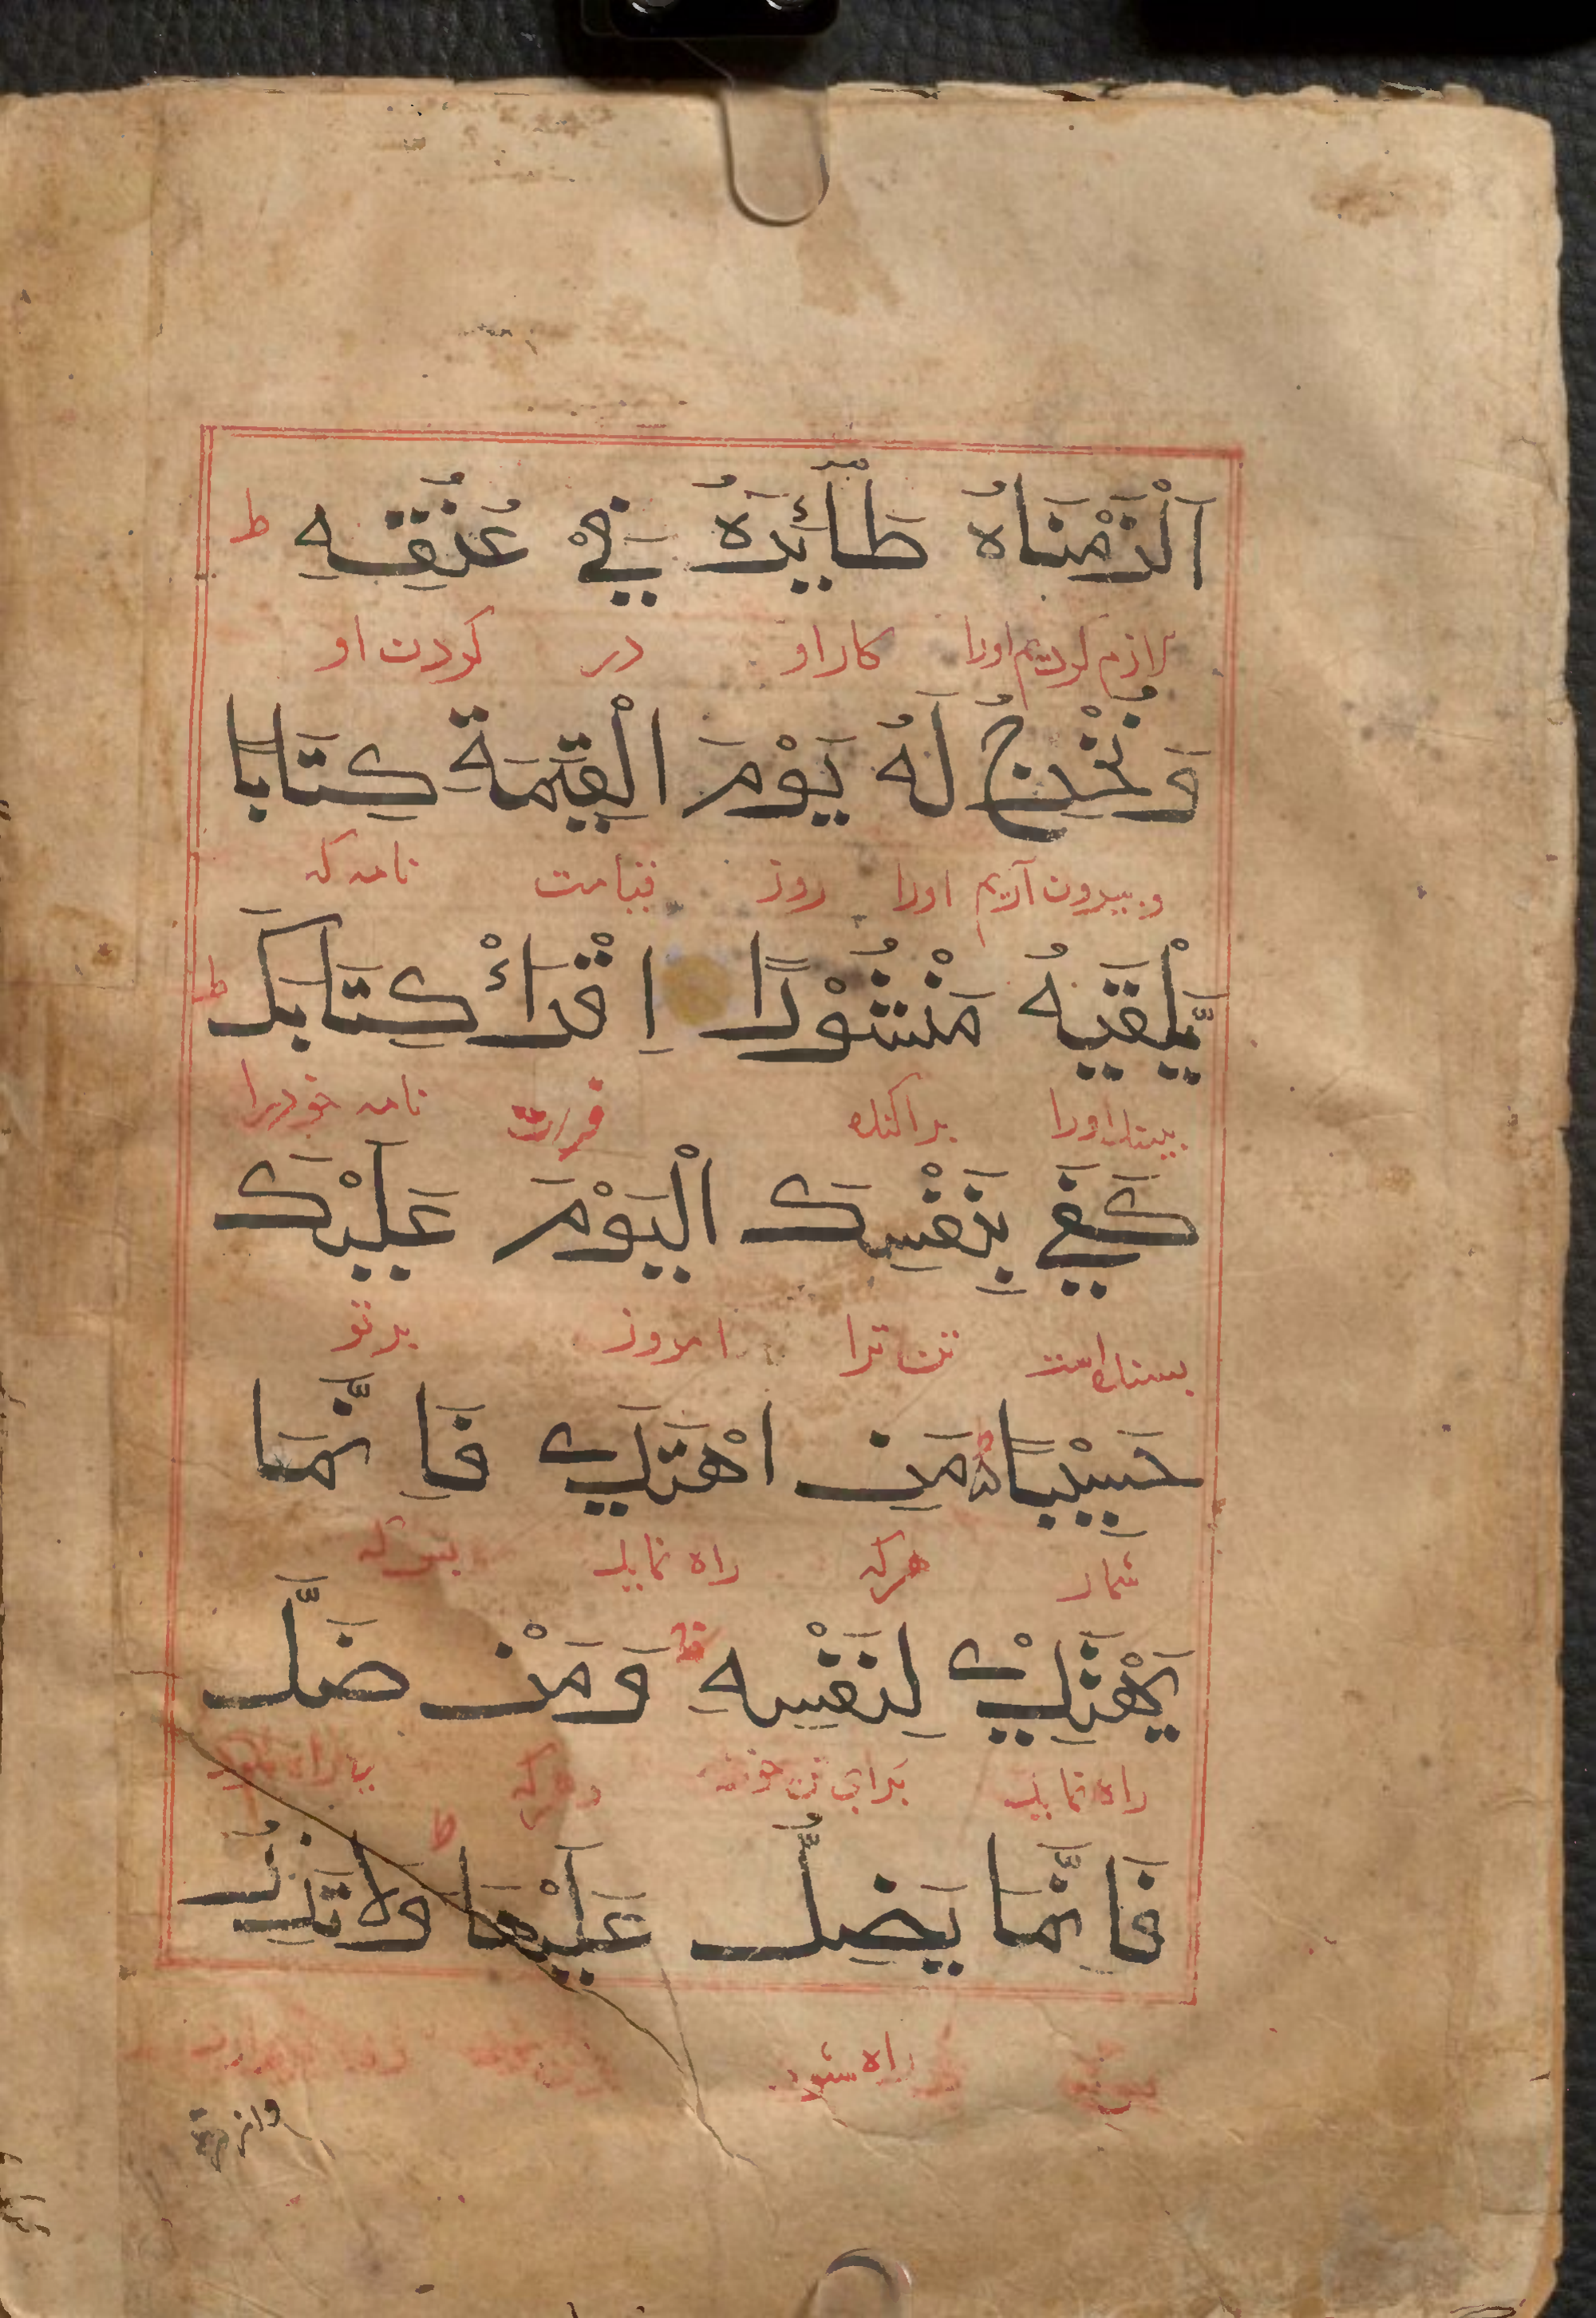 اَلْزَمْنَاهُ طَآئِرَهُ فِيْ عُنُقِهِ ط
لازم كرديم اورا كار او در كردن او
وَنُخْرِجُ لَهُ يَوْمَ الْقِيٰمَةِ كِتَابًا
و بيرون آريم اورا روز قيامت نامه كه
يَّلْقٰيهُ مَنْشُوْرًا اِقْرَأْ كِتَابَكَ ط
ببيند اورا براكنده نامه خودرا
كَفٰي بِنَفْسِكَ الْيَوْمَ عَلَيْكَ
بسنده است تن ترا امروز برتو
حَسِيْبًا مَنِ اهْتَدٰي فَاِنَّمَا
شمار هركه راه نمايد
يَهْتَدِيْ لِنَفْسِهِ وَمَنْ ضَلَّ
راه نمايد براي تن هركه بي راه
فَاِنَّمَا يَضِلُّ عَلَيْهَا وَلَا تَزِرُ ط
راه شود
وازرة